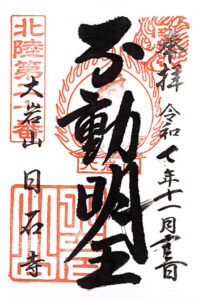 奉拝
令和七年十一月三日
不動明王
北陸第
大岩山 日石寺